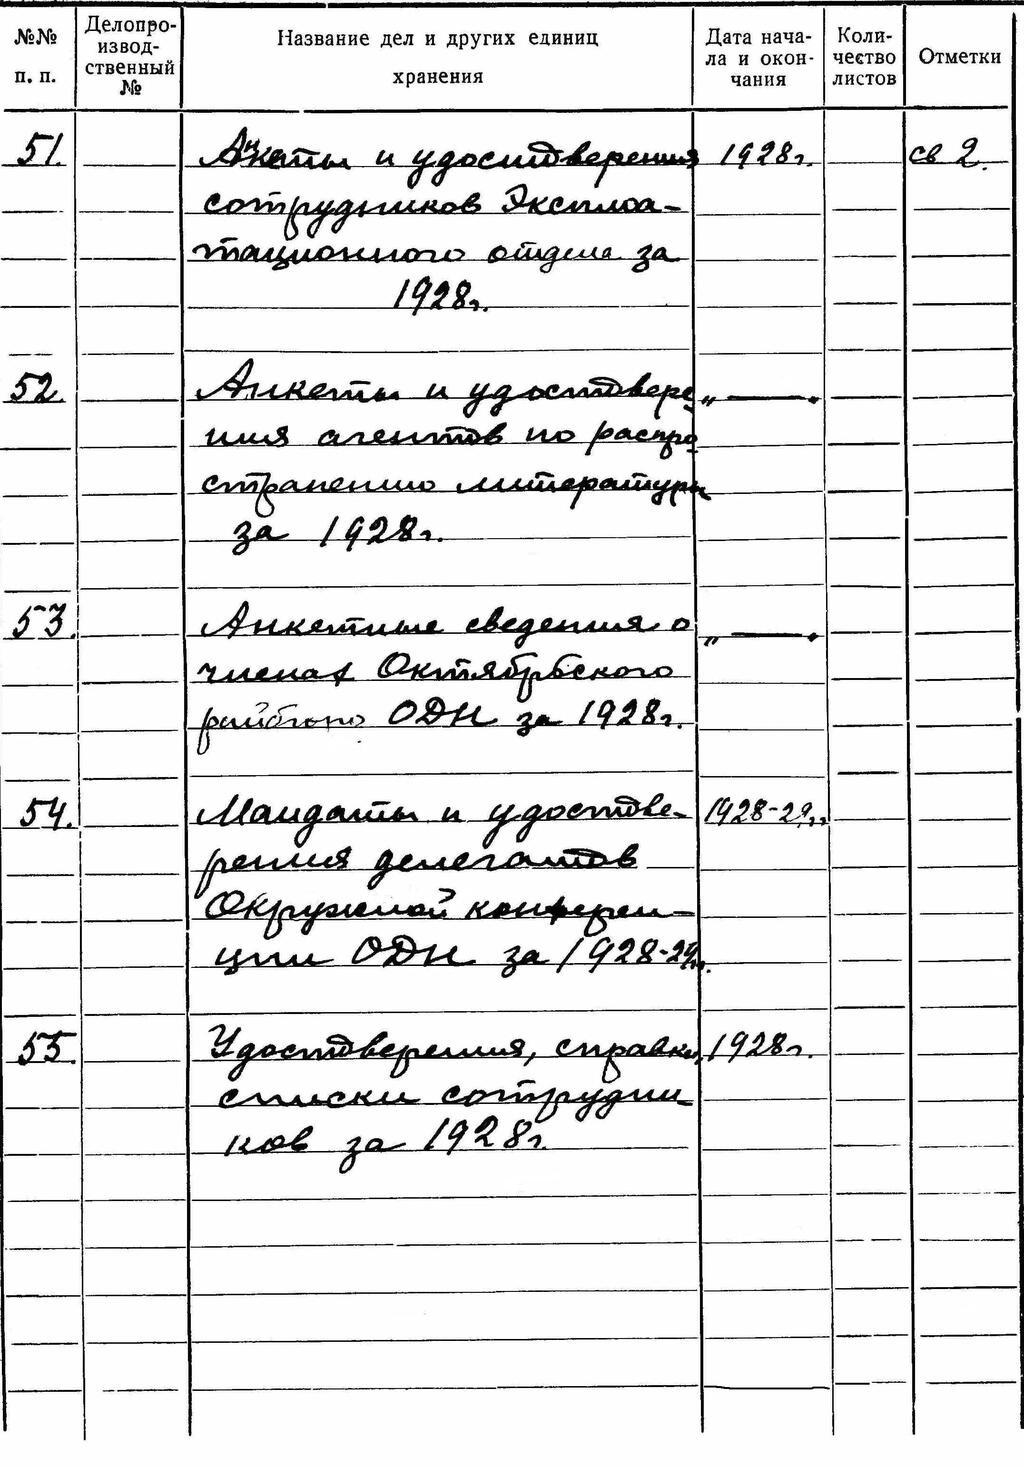 №№ п. п.
Делопро-извод-ственный №
Название дел и других единиц хранения
Дата нача-ла и окон-чания
Коли-чество листов
Отметки
51. Анкеты и удостоверения 1928г. св 2.
сотрудников Эксплоа-
тационного отдела за
1928г.
52. Анкеты и удостовере- „ — .
ния агентов по распро-
странению литературы
за 1928г.
53. Анкетные сведения о „ — .
членах Октябрьского
райбюро ОДН за 1928г.
54. Мандаты и удостове- 1928-29гг.
рения делегатов
Окружной конферен-
ции ОДН за 1928-29гг.
55. Удостоверения, справки, 1928г.
списки сотрудни-
ков за 1928г.